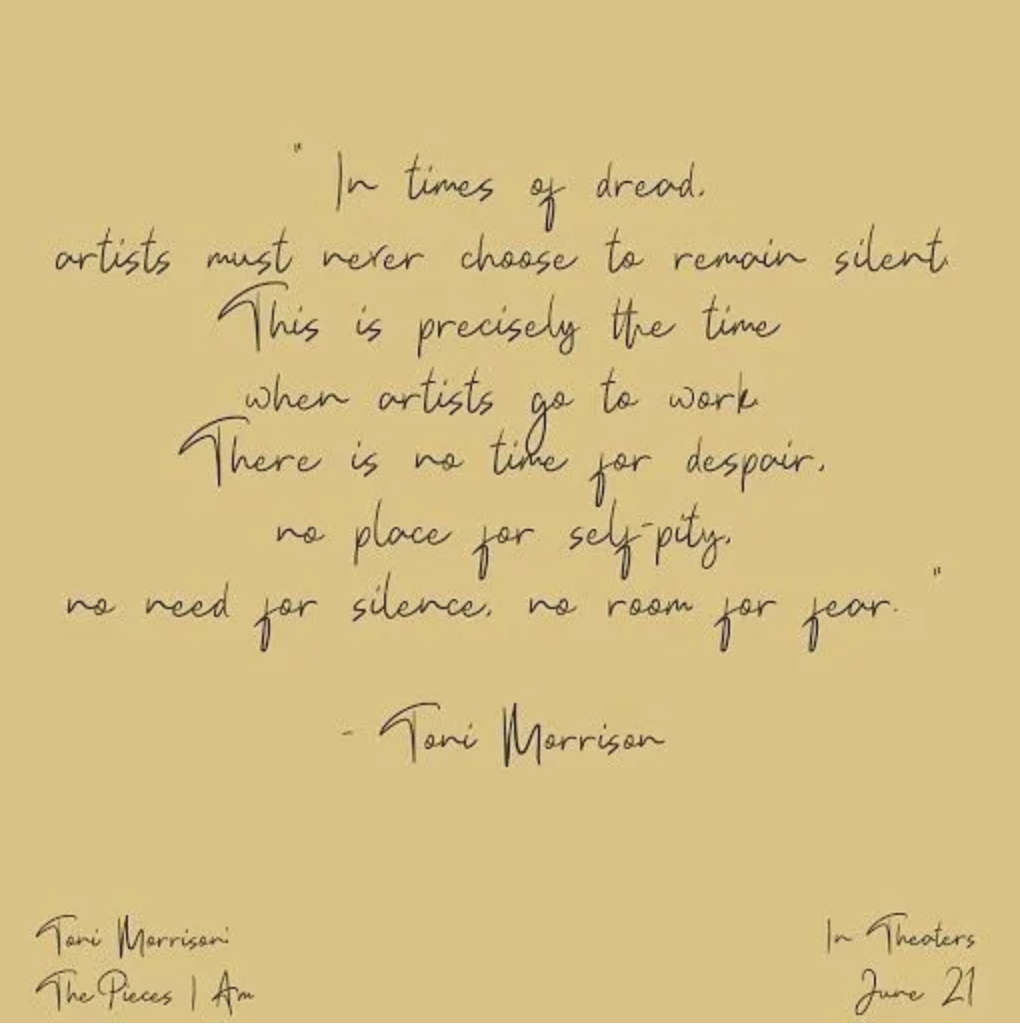 " In times of dread,
artists must never choose to remain silent.
This is precisely the time
when artists go to work.
There is no time for despair,
no place for self-pity,
no need for silence, no room for fear. "
- Toni Morrison
Toni Morrison:
The Pieces I Am
In Theaters
June 21